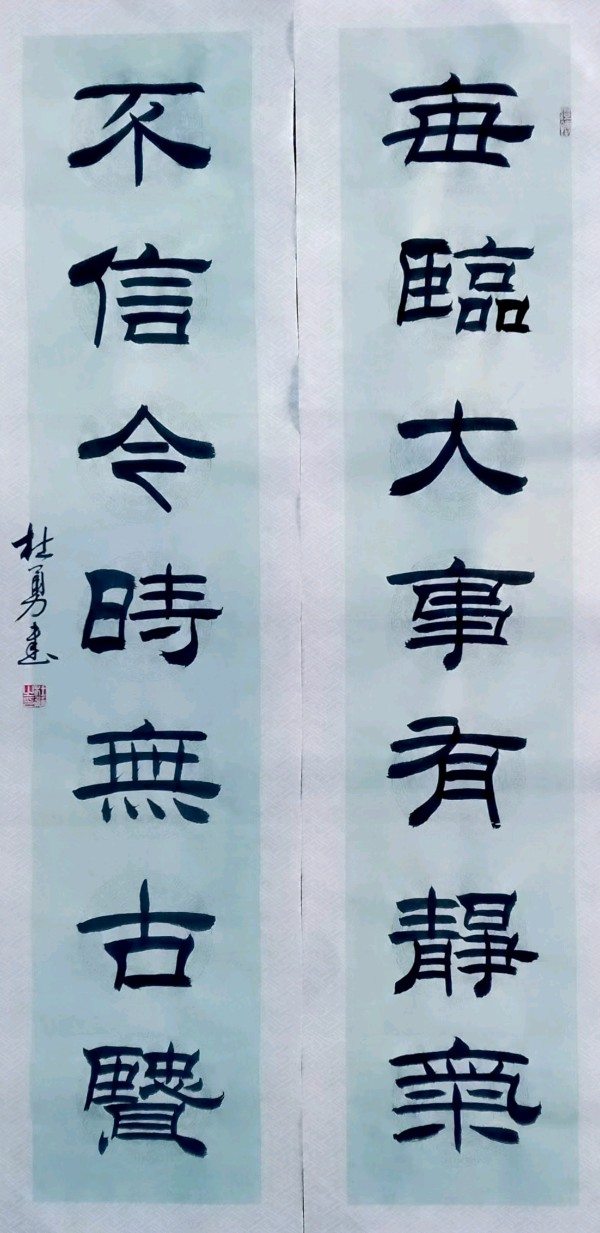 每臨大事有靜氣
不信令時無古賢
杜勇書